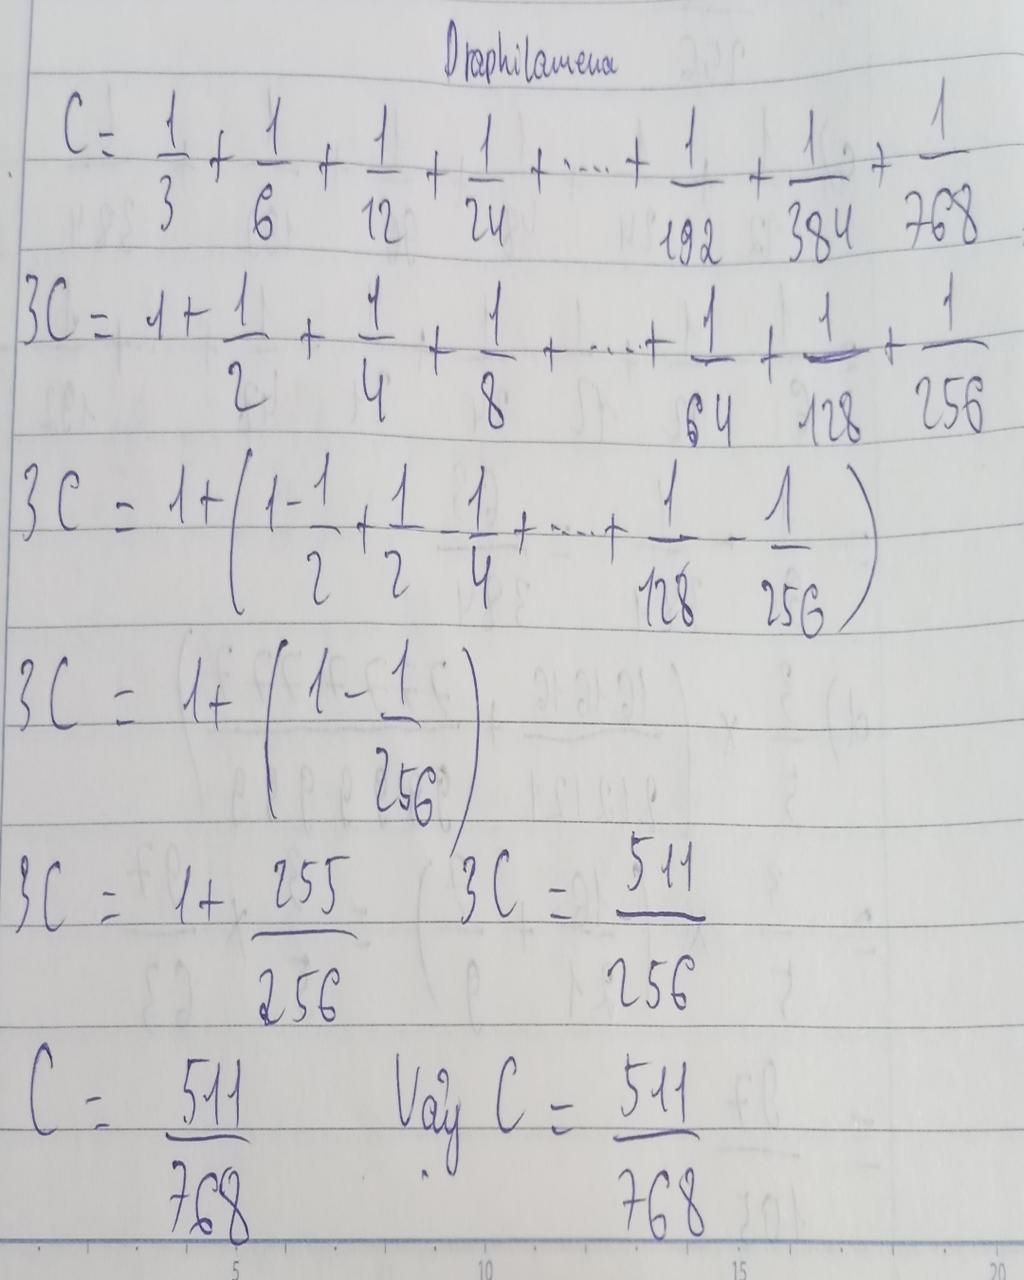 Draphilamena
C = 1/3 + 1/6 + 1/12 + 1/24 + .... + 1/192 + 1/384 + 1/768
3C = 1 + 1/2 + 1/4 + 1/8 + .... + 1/64 + 1/128 + 1/256
3C = 1 + (1 - 1/2 + 1/2 - 1/4 + .... + 1/128 - 1/256)
3C = 1 + (1 - 1/256)
3C = 1 + 255/256 3C = 511/256
C = 511/768 Vậy C = 511/768
5 10 15 20